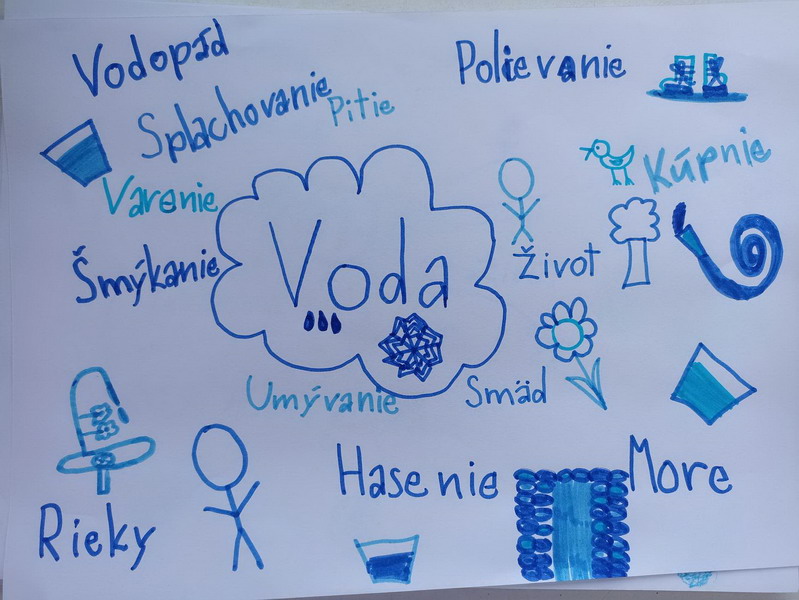 Vodopád
Polievanie
Splachovanie
Pitie
Kúpnie
Varenie
Život
Šmýkanie
Voda
Umývanie
Smäd
Hasenie
More
Rieky